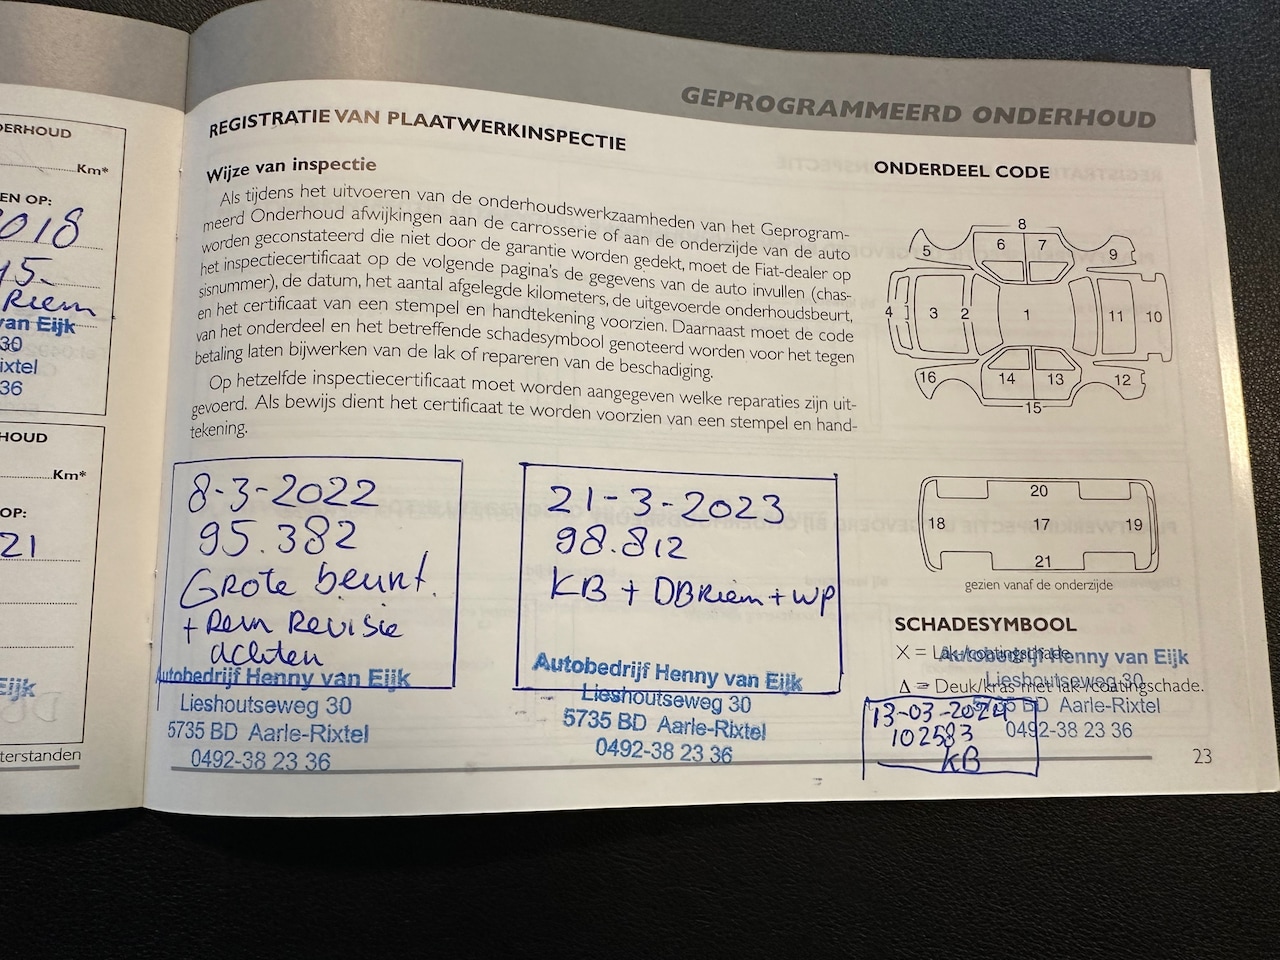 DERHOUD
Km*
EN OP:
2018
45.-
Riem
van Eijk
30
ixtel
36
HOUD
Km*
OP:
21
Eijk
terstanden
GEPROGRAMMEERD ONDERHOUD
REGISTRATIE VAN PLAATWERKINSPECTIE
Wijze van inspectie
Als tijdens het uitvoeren van de onderhoudswerkzaamheden van het Geprogram-
meerd Onderhoud afwijkingen aan de carrosserie of aan de onderzijde van de auto
worden geconstateerd die niet door de garantie worden gedekt, moet de Fiat-dealer op
het inspectiecertificaat op de volgende pagina's de gegevens van de auto invullen (chas-
sisnummer), de datum, het aantal afgelegde kilometers, de uitgevoerde onderhoudsbeurt,
en het certificaat van een stempel en handtekening voorzien. Daarnaast moet de code
van het onderdeel en het betreffende schadesymbool genoteerd worden voor het tegen
betaling laten bijwerken van de lak of repareren van de beschadiging.
Op hetzelfde inspectiecertificaat moet worden aangegeven welke reparaties zijn uit-
gevoerd. Als bewijs dient het certificaat te worden voorzien van een stempel en hand-
tekening.
8-3-2022
95.382
Grote beurt.
+ Rem Revisie
achten
Autobedrijf Henny van Eijk
Lieshoutseweg 30
5735 BD Aarle-Rixtel
0492-38 23 36
21-3-2023
98.812
KB + DBRiem + WP
Autobedrijf Henny van Eijk
Lieshoutseweg 30
5735 BD Aarle-Rixtel
0492-38 23 36
ONDERDEEL CODE
8
5 6 7 9
4 3 2 1 11 10
16 14 13 12
15
20
18 17 19
21
gezien vanaf de onderzijde
SCHADESYMBOOL
X = Lak-/coatingschade.
Δ = Deuk/kras met lak-/coatingschade.
Autobedrijf Henny van Eijk
Lieshoutseweg 30
5735 BD Aarle-Rixtel
0492-38 23 36
13-03-2024
102583
KB
23